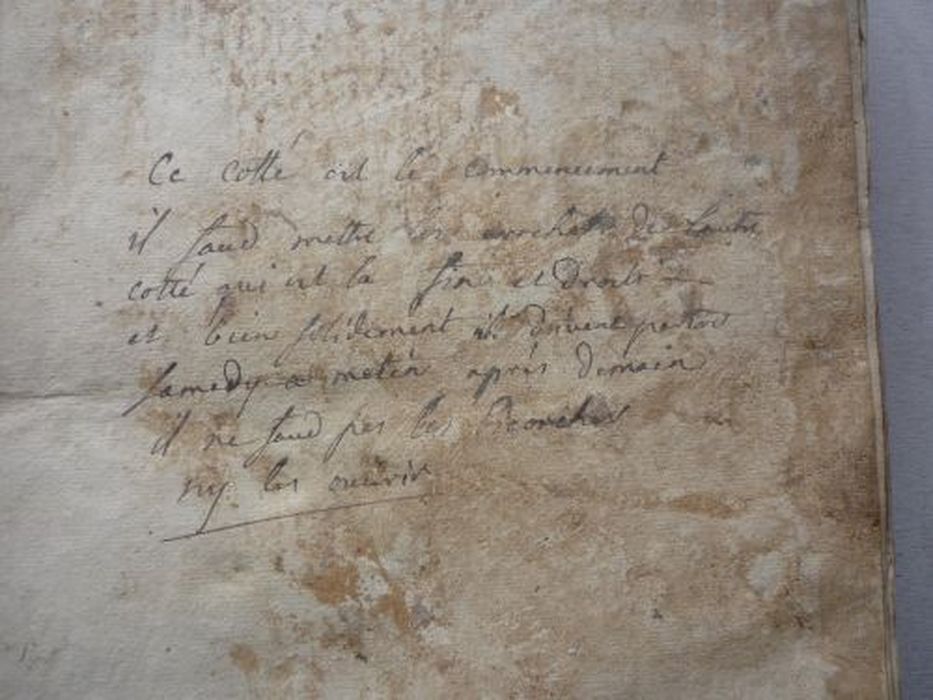 Ce cotté est le commencement
il faud mettre les crochets de lautre
cotté qui est la fin et droits
et bien solidement ils doivent partir
samedy a matin après demain
il ne faud pas les Ecorcher
ny les ouvrir